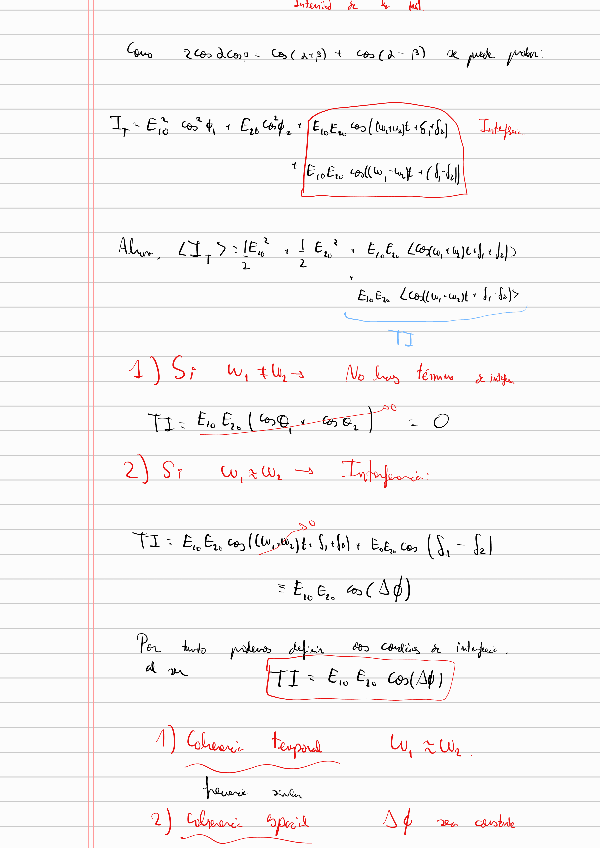 Intensidad de la luz
Como 2cosαcosβ = cos(α+β) + cos(α-β) se puede probar:
I_T = E₁₀² cos²φ₁ + E₂₀ cos²φ₂ + E₁₀E₂₀ cos((ω₁+ω₂)t + δ₁+δ₂) Interferen
+ E₁₀E₂₀ cos((ω₁-ω₂)t + (δ₁-δ₂))
Ahora, <I_T> = 1/2 E₁₀² + 1/2 E₂₀² + E₁₀E₂₀ <cos(ω₁+ω₂)t+δ₁+δ₂)>
+
E₁₀E₂₀ <cos((ω₁-ω₂)t + δ₁-δ₂)>
TI
1) Si ω₁ ≠ ω₂ → No hay término de interfe
TI = E₁₀E₂₀ (cosθ₁ + cosθ₂)→0 = 0
2) Si ω₁ ≈ ω₂ → Interferencia:
TI = E₁₀E₂₀ cos((ω₁+ω₂)t + δ₁+δ₂) →0 + E₁₀E₂₀ cos(δ₁ - δ₂)
= E₁₀ E₂₀ cos(Δϕ)
Por tanto podemos definir dos condicines de interferen.
al ser TI = E₁₀ E₂₀ cos(Δϕ)
1) Coherencia temporal ω₁ ≈ ω₂
frecuencia similar
2) Coherencia espacial Δϕ sea constante